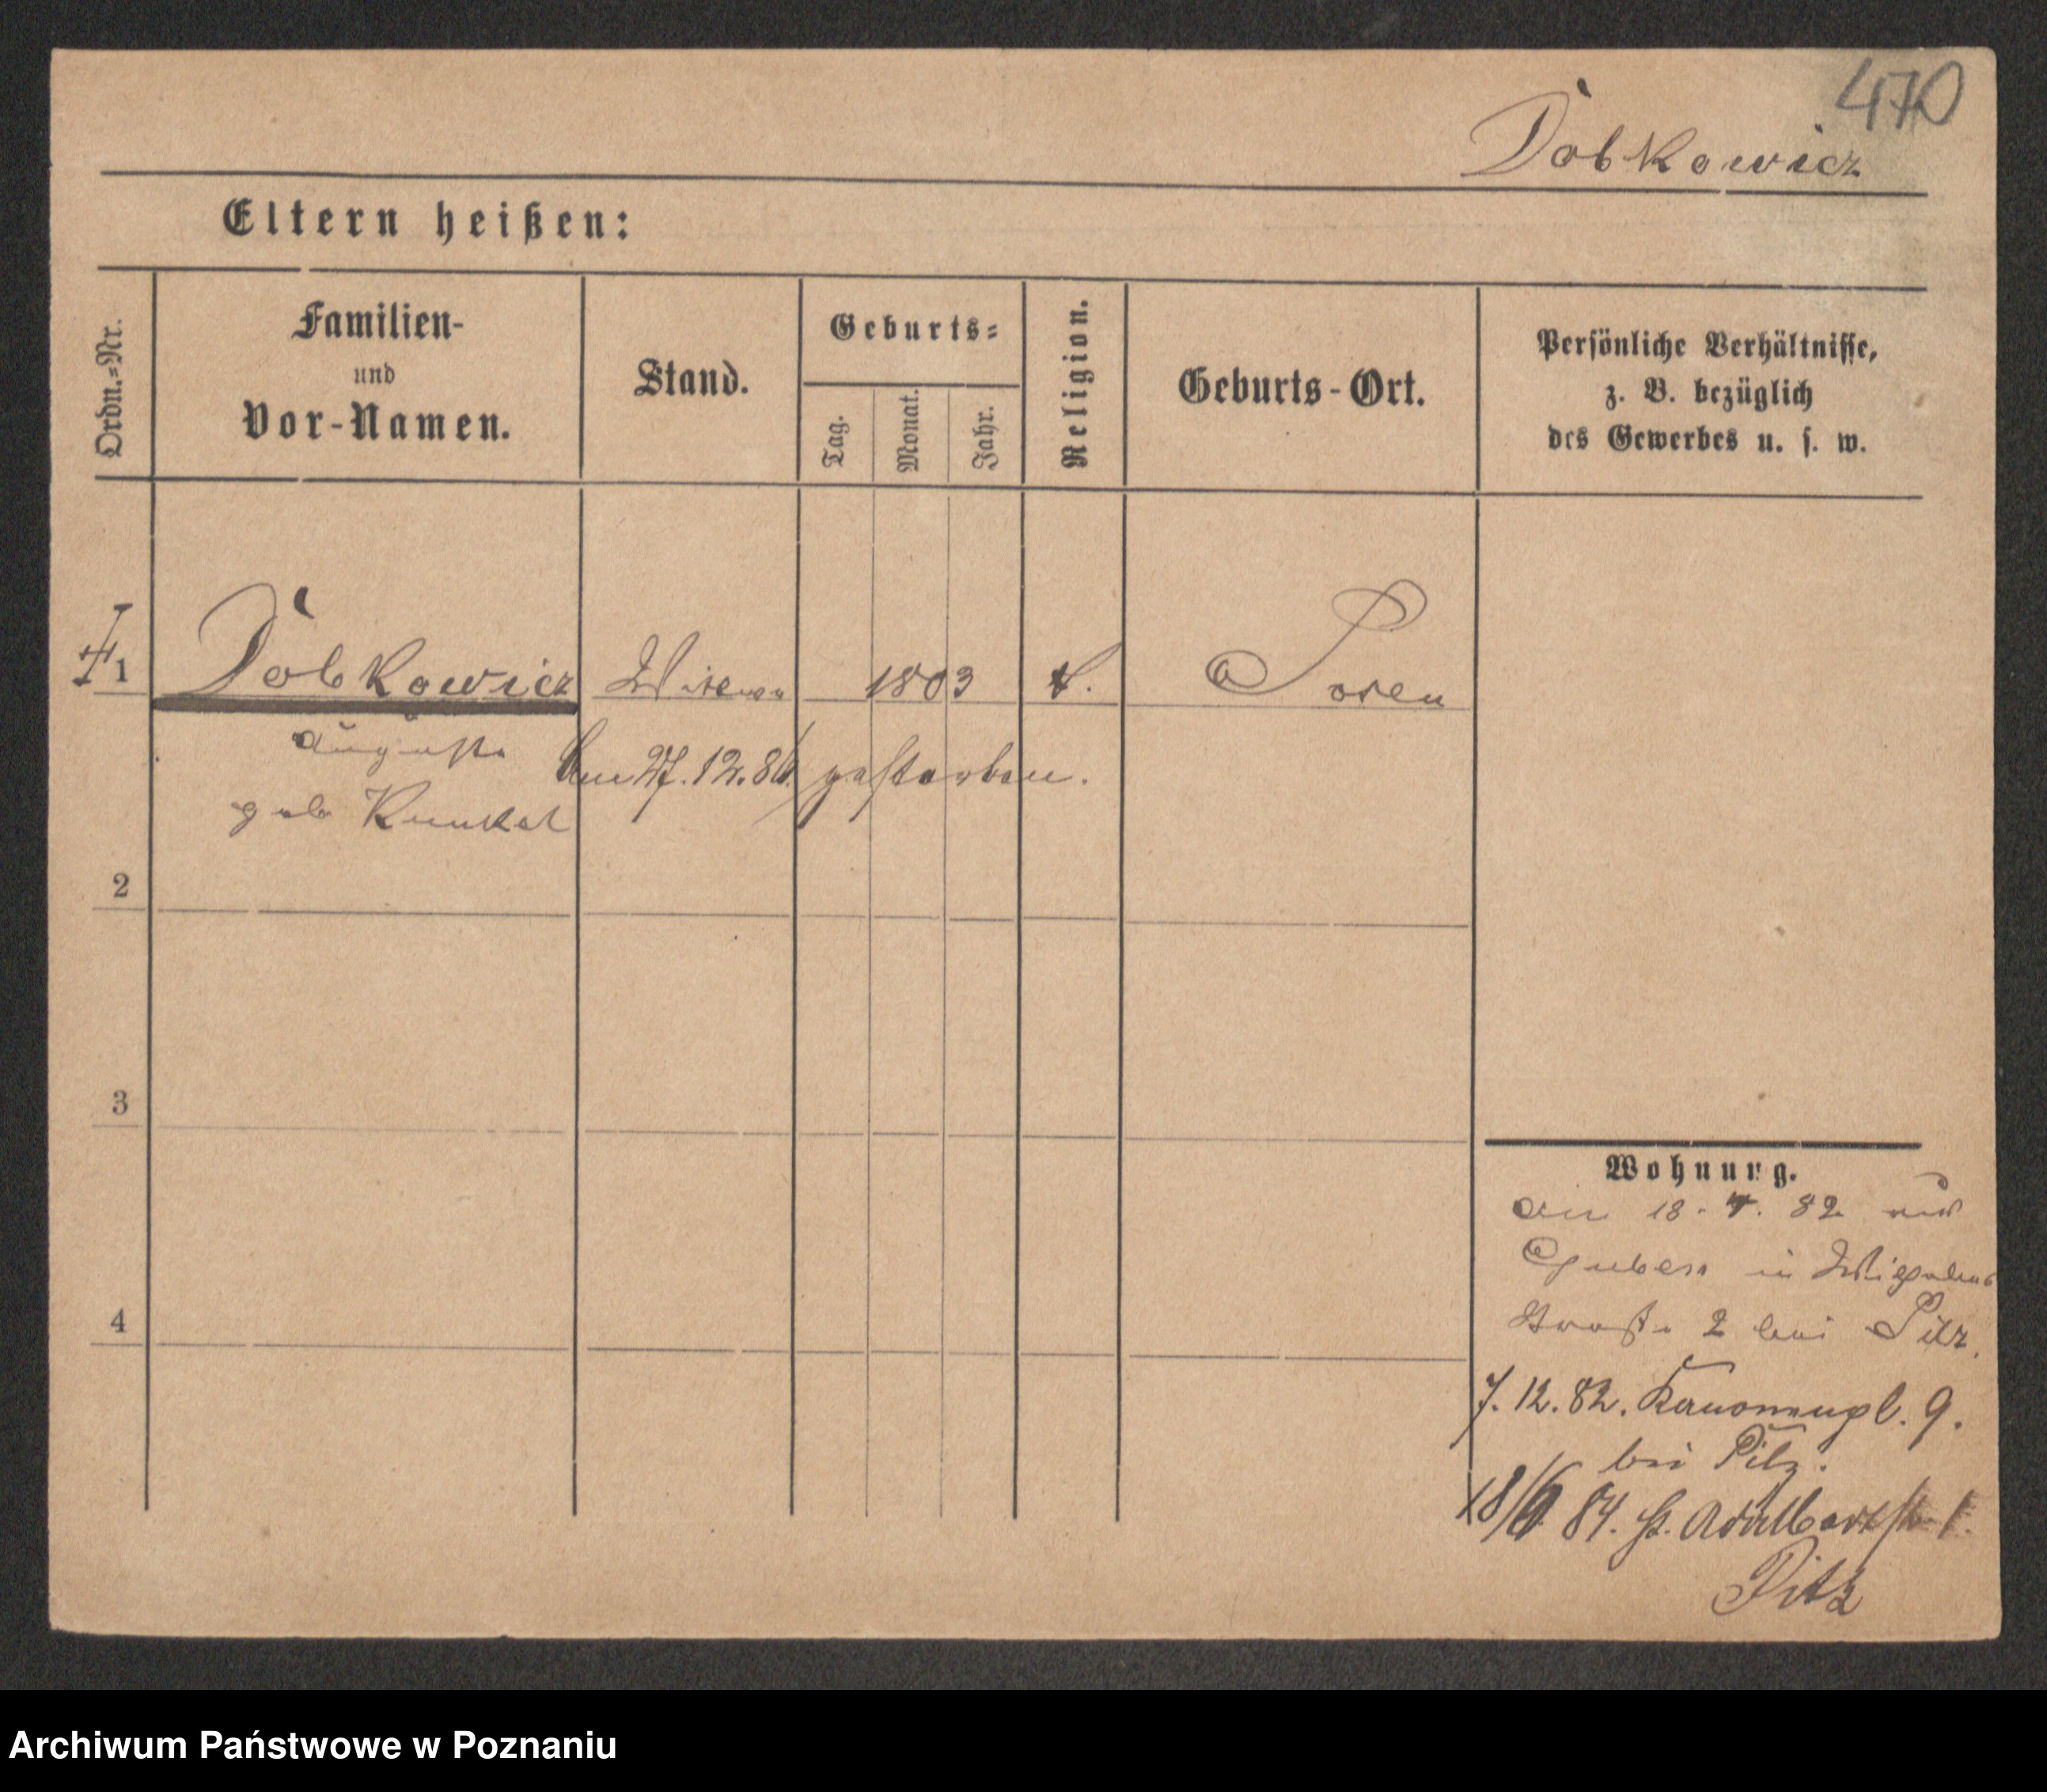 470
Dobkowicz
Eltern heißen:
Ordn.=Nr.
Familien-
und
Vor-Namen.
Stand.
Geburts=
Tag.
Monat.
Jahr.
Religion.
Geburts-Ort.
Persönliche Verhältnisse,
z. B. bezüglich
des Gewerbes u. s. w.
1
Dobkowicz
1803
Posen
Auguste
geb Kunkel
am 27. 12. 86. gestorben.
2
3
4
Wohnung.
am 18. 4. 82 aus
Guben in
Straße 2 bei Pilz.
7. 12. 82. Kanonenpl. 9.
bei Pilz.
18/6 84. St. Adalbertstr 1.
Pilz
Archiwum Państwowe w Poznaniu